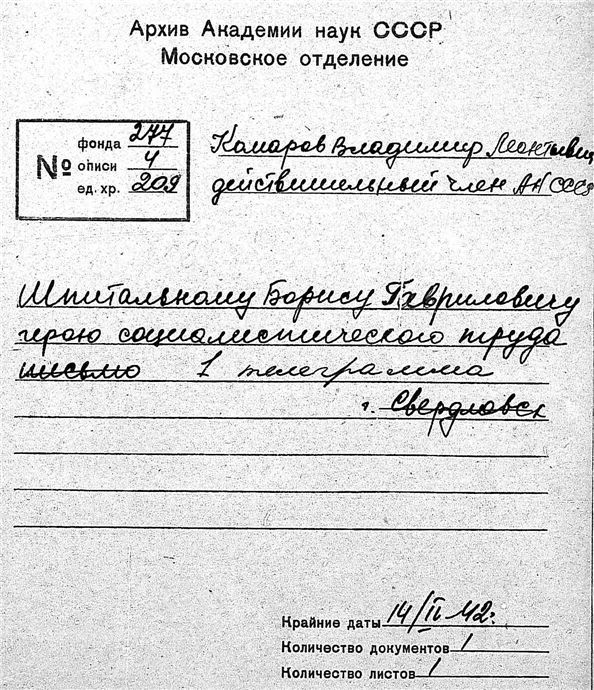 Архив Академии наук СССР
Московское отделение
№
фонда 277
описи 4
ед. хр. 209
Комаров Владимир Леонтьевич
действительный член АН СССР
Шпитальному Борису Гавриловичу
герою социалистического труда
письмо 1 телеграмма
г. Свердловск
Крайние даты 14/II-42г.
Количество документов 1
Количество листов 1